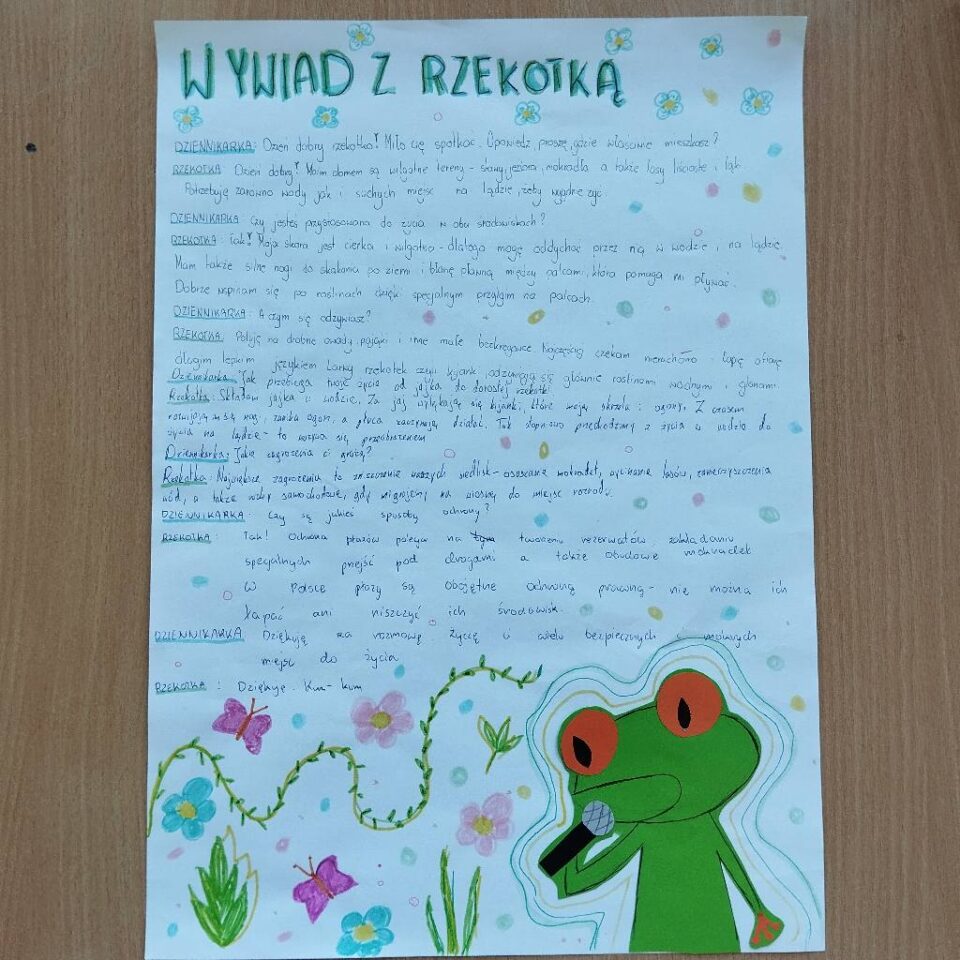 WYWIAD Z RZEKOTKĄ
DZIENNIKARKA: Dzień dobry rzekotko! Miło cię spotkać. Opowiedz proszę, gdzie właściwie mieszkasz?
RZEKOTKA: Dzień dobry! Moim domem są wilgotne tereny - stawy, jeziora, mokradła a także lasy liściaste i łąki.
Potrzebuję zarówno wody jak i suchych miejsc na lądzie, żeby wygodnie żyć
DZIENNIKARKA: Czy jesteś przystosowana do życia w obu środowiskach?
RZEKOTKA: Tak! Moja skóra jest cienka i wilgotna - dlatego mogę oddychać przez nią w wodzie i na lądzie.
Mam także silne nogi do skakania po ziemi i błonę pławną między palcami, która pomaga mi pływać.
Dobrze wspinam się po roślinach dzięki specjalnym przylgom na palcach.
DZIENNIKARKA: Czym się odżywiasz?
RZEKOTKA: Poluję na drobne owady, pająki i inne małe bezkręgowce. Najczęściej czekam nieruchomo i łapię ofiarę
długim lepkim językiem. Larwy rzekotek czyli kijanki odżywiają się głównie roślinami wodnymi i glonami.
Dziennikarka: Jak przebiega twoje życie od jajka do dorosłej rzekotki?
Rzekotka: Składam jajka w wodzie. Za jaj wylękają się kijanki, które mają skrzela i ogony. Z czasem
rozwijają im się nogi, zanika ogon, a płuca zaczynają działać. Tak stopniowo przechodzimy z życia w wodzie do
życia na lądzie - to nazywa się przeobrażeniem
Dziennikarka: Jakie zagrożenia ci grożą?
Rzekotka: Największe zagrożenia to zniszczenie naszych siedlisk - osuszanie mokradeł, wycinanie lasów, zanieczyszczenia
wód, a także ruchy samochodowe, gdy migrujemy na wiosnę do miejsc rozrodu.
DZIENNIKARKA: Czy są jakieś sposoby ochrony?
RZEKOTKA: Tak! Ochrona płazów polega na tworzeniu rezerwatów, zakładaniu
specjalnych przejść pod drogami a także obudowie mokradeł
W Polsce płazy są objętne ochroną prawną - nie można ich
łapać ani niszczyć ich środowisk.
DZIENNIKARKA Dziękuję za rozmowę życzę ci wielu bezpiecznych i
miejsc do życia
RZEKOTKA: Dziękuję. Kum-kum